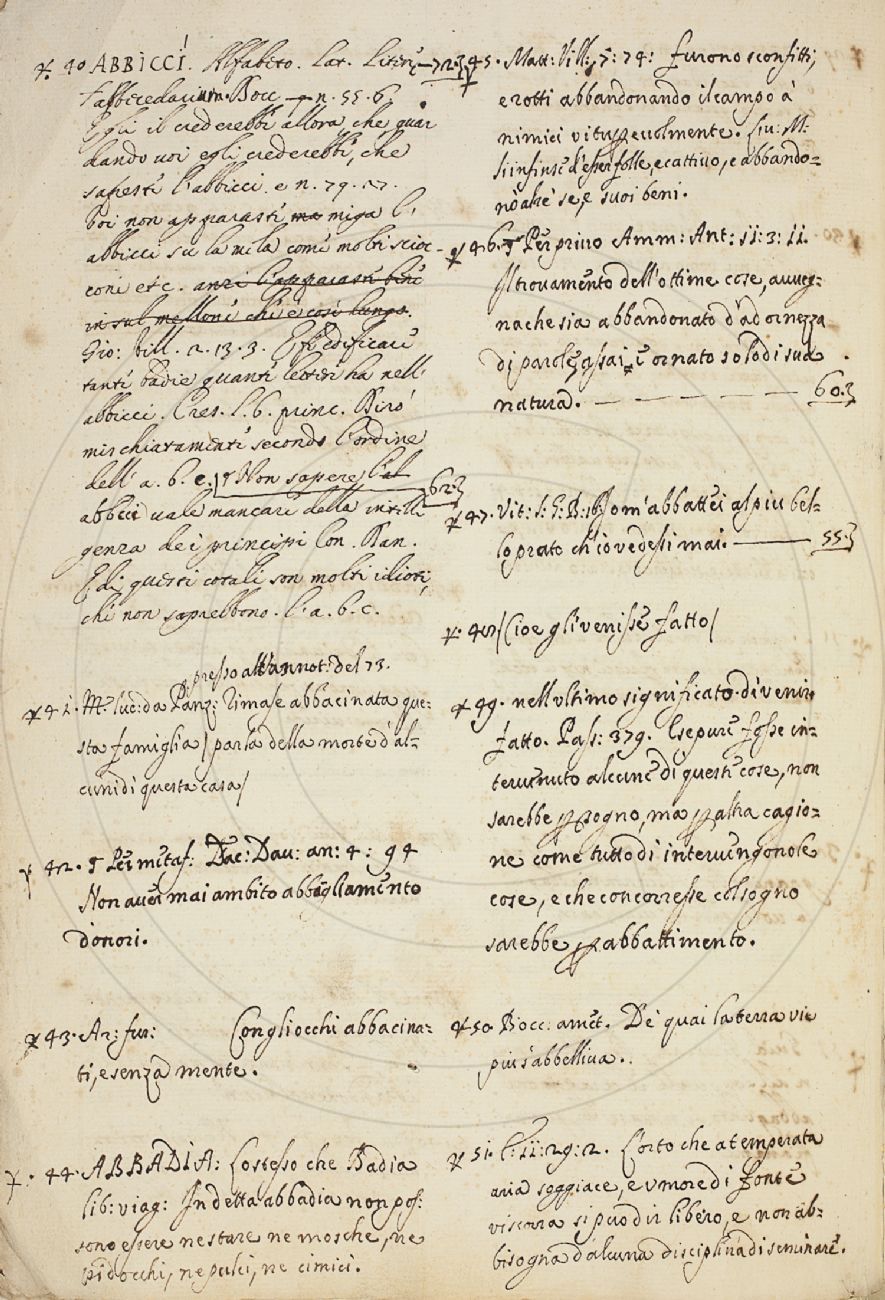 40 ABBICCÍ. Alfabeto. Lat. Liter. 72.3
l'abbecedarium. Bocc. n. 55. 6.
Egli il crederebbe allora che guar
dando voi egli crederebbe, che
sapeste l'abbicci. e n. 79. 17.
Voi non apparaste ma miga l'
abbicci su la mela come molti scioc-
coni etc. anzi l'apparaste bene
in sul mellone che è così lungo.
Gio: Vill. 2. 13. 3. E fe edificare
tante badie quante lettere ha nell'
abbicci. Cres. l. 6. princ. Dirò
mischiatamente secondo l'ordine
dell' a. b. c. Non sapere l'al 62.3
abbicci vale mancare della intelli
genza dei principi Con. Dan.
E di questi cotali son molti idioti,
che non saprebbono. l'a. b. c.
presso all'annot: del 73.
41. M. luc: da Panz: Rimase abbacinata que:
sta famiglia / parla della morte d'al-
cuni di questa casa /
42. § Per metaf: Dav: an: 4: 94
Non aver mai ambito abbagliamento
d'onori.
43. Ar: fur: Con gli occhi abbacina:
ti, e senza mente.
44. ABBADIA: Lo stesso che Badia
lib: viag: In detta abbadia non pos:
sono essere ne stare ne mosche, ne
pidocchi, ne pulci, ne cimici.
45. Matt: Vill: 5: 74: furono sconfitti,
e rotti abbandonando il campo à
nimici vituperevolmente. Liv: M:
Si infinse d'esser folle, e cattivo, e abbando=
nò anche se, e suoi beni.
46. § Per privo Amm: Ant: 11: 3: 11.
Il trovamento dell'ottime cose, avveg-
nache sia abbandonato d'adornezza
di parole, assai è ornato solo di sua
natura. — — — — — — 60.3
47. Vit: S: G: B: Io m'abbattei al piu bel-
lo prato ch'io vedessi mai. — 55.3
48 /Cioe gli venisse fatto/
49. nell'ultimo significato di venir
fatto. Pass: 379. E se pure fosse in=
tervenuto alcune di queste cose, non
sarebbe per sogno, ma per altra cagio=
ne come tutto di intervengono le
cose, e che concorresse col sogno
sarebbe per abbattimento.
50 Bocc: amet. De quai la terra vie
piu s'abbelliva.
51. C: 11: 29: 2. L'orto che a temperata
aria soggiace, e umore di fonte
viscorra si può dir libero, e non ab=
bisogna d'alcuna disciplina di seminare.